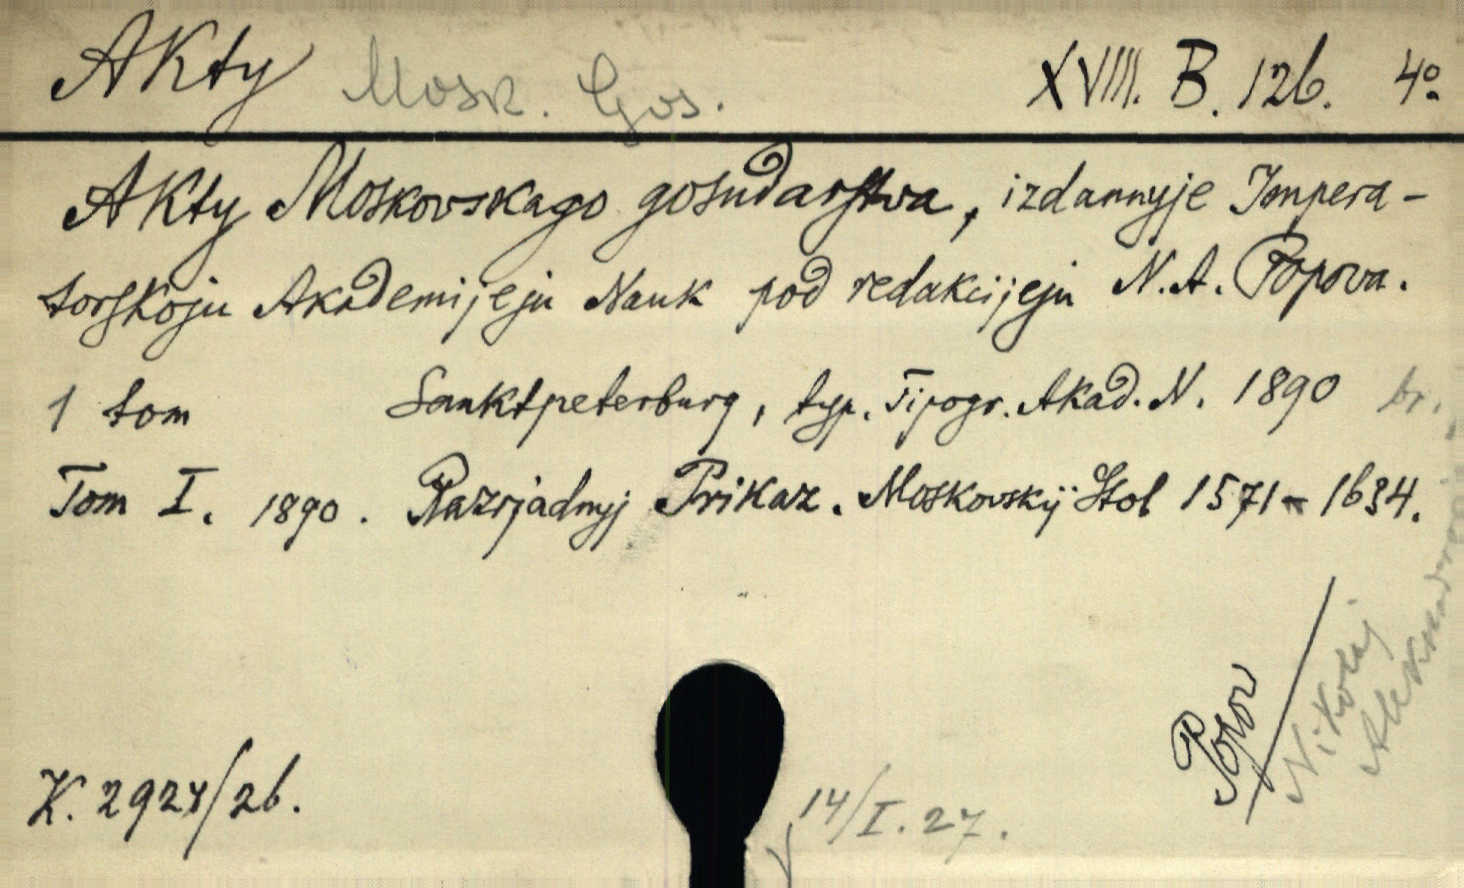 Akty Mosk. Gos. XVIII. B. 126. 4º
Akty Moskovskago gosudarstva, izdannyje Impera-
torskoju Akademijeju Nauk pod redakcijeju N. A. Popova.
1 tom Sanktpeterburg, typ. Tipogr. Akad. N. 1890 br.
Tom I. 1890. Razrjadnyj Prikaz. Moskovskij Stol 1571-1634.
Popov
Nikolaj
K. 2927/26.
14/I. 27.